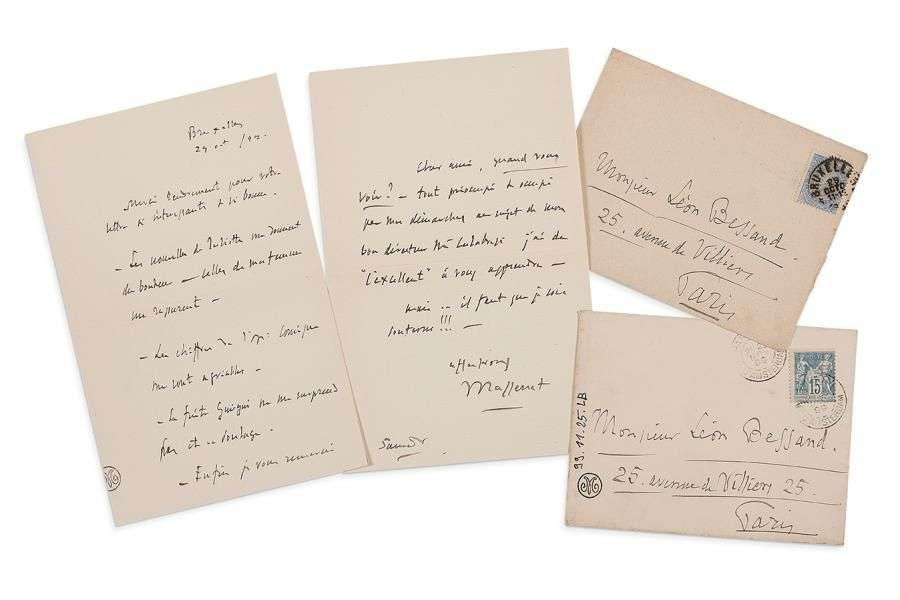 Bruxelles
29 oct /92.
Merci tendrement pour votre
lettre si intéressante & si bonne.
— Les nouvelles de Juliette me donnent
du bonheur — celles de ma femme
me rassurent —
— Les chiffres de l'op: comique
me sont agréables —
— La
me surprend
pas et
— Enfin je vous remercie
Cher ami, quand vous
voir? — tout préoccupé & occupé
par mes démarches au sujet de mon
bon directeur
j'ai de
"l'excellent" à vous apprendre —
mais ... il faut que je sois
!!! —
affectueux
Massenet
Samedi
BRUXELLES
Monsieur Léon Bessand.
25. avenue de Villiers
Paris
15
Monsieur Léon Bessand.
25. avenue de Villiers 25.
Paris
99.11.25.LB
M